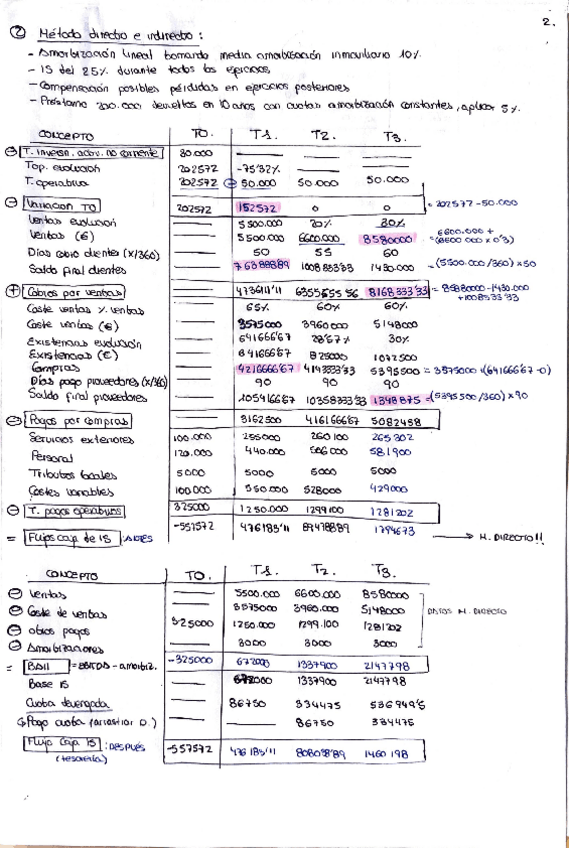 2.
② Método directo e indirecto :
- Amortización lineal tomando media amortización inmovilizado 10%.
- IS del 25% durante todos los ejercicios
- Compensación posibles pérdidas en ejercicios posteriores
- Préstamo 200.000 devueltos en 10 años con cuotas amortización constantes, aplicar 5%.
CONCEPTO T0. T1. T2. T3.
⊖ T. inversn. activ. no corriente 30.000 — — —
Top. evolución 202572 -75'32% — —
T. operativa 202572 50.000 50.000 50.000
⊖ Variacion TO 202572 152572 0 0 = 202572 - 50.000
Ventas evolución — 5500.000 20% 30%
Ventas (€) — 5500.000 6600.000 8580000 6600.000 + (6600.000 x 0'3)
Días cobro clientes (x/360) — 50 55 60
Saldo final clientes — 763888'89 1008333'33 1430.000 = (5500.000/360) x 50
⊕ Cobros por ventas — 4736111'11 6355555'56 8168333'33 = 8580000 - 1430.000 + 1008333'33
Coste ventas % ventas — 65% 60% 60%
Coste ventas (€) — 3575000 3960000 5148000
Existencias evolución — 641666'67 28'67% 30%
Existencias (€) — 641666'67 825000 1072500
Compras — 4216666'67 4143333'33 5395500 = 3575000 + (641666'67 - 0)
Días pago proveedores (x/360) — 90 90 90
Saldo final proveedores — 1054166'67 1035833'33 1348875 = (5395500/360) x 90
⊖ Pagos por compras — 3162500 4161666'67 5082458
Servicios exteriores 100.000 255000 260100 265302
Personal 120.000 440.000 506000 581900
Tributos locales 5000 5000 5000 5000
Costes variables 100000 550.000 528000 429000
⊖ T. pagos operativos 325000 1250.000 1299100 1281202
= Flujos caja de IS : ANTES -557572 476183'11 894788'89 1794673 → M. DIRECTO!!
CONCEPTO T0. T1. T2. T3.
⊖ Ventas — 5500.000 6600.000 8580000
⊖ Coste de ventas — 3575000 3960.000 5148000 DATOS M. DIRECTO
⊖ otros pagos 325000 1250.000 1299.100 1281202
⊖ Amortizaciones — 3000 3000 3000
= BAII = EBITDA - amortiz. -325000 672000 1337900 2147798
Base IS — 672000 1337900 2147798
Cuota devengada — 86750 334475 536949'5
Pago cuota — — 86750 334475
Flujo Caja IS : DESPUÉS -557572 476183'11 808038'89 1460198
(tesorería)